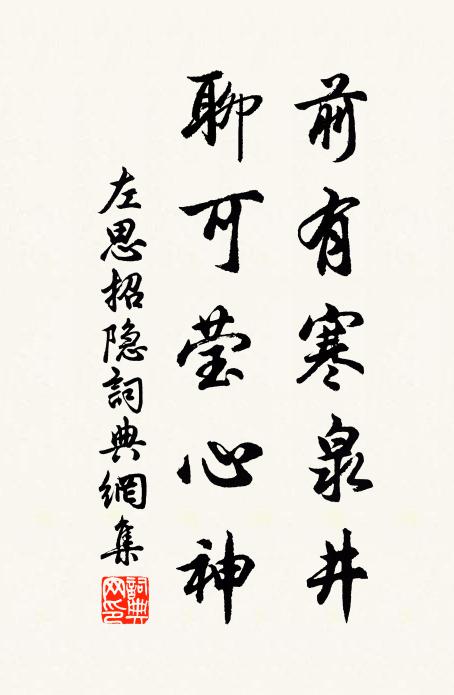 前有寒泉井
聊可莹心神
左思招隐詞典網集
詞典网印